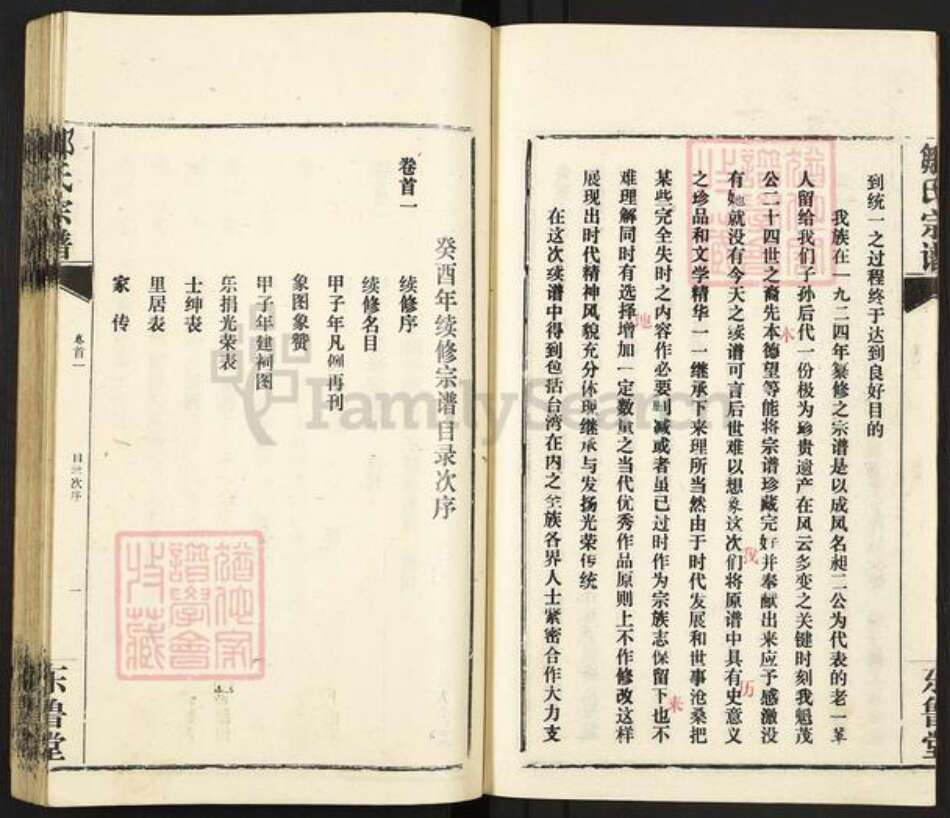 鄒氏宗譜
到统一之过程终于达到良好目的
我族在一九二四年纂修之宗谱是以成凤名昶二公为代表的老一辈
人留给我们子孙后代一份极为珍贵遗产在风云多变之关键时刻我魁茂
公二十四世之裔先本德望等能将宗谱珍藏完好并奉献出来应予感激没
本
有她就没有今天之续谱可言后世难以想象这次们将原谱中具有史意义
我
历
之珍品和文学精华一一继承下来理所当然由于时代发展和世事沧桑把
某些完全失时之内容作必要删减或者虽已过时作为宗族志保留下也不
地
来
难理解同时有选择增加一定数量之当代优秀作品原则上不作修改这样
展现出时代精神风貌充分体现继承与发扬光荣传统
在这次续谱中得到包括台湾在内之全族各界人士紧密合作大力支
东鲁堂
癸酉年续修宗谱目录次序
卷首一
续修序
续修名目
甲子年凡例再刊
象图象赞
甲子年建祠图
乐捐光荣表
士绅表
里居表
家传
氏宗譜
卷首一
目录次序
一
东鲁堂
猶他家譜學會收藏
猶他家譜學會收藏
FamilySearch